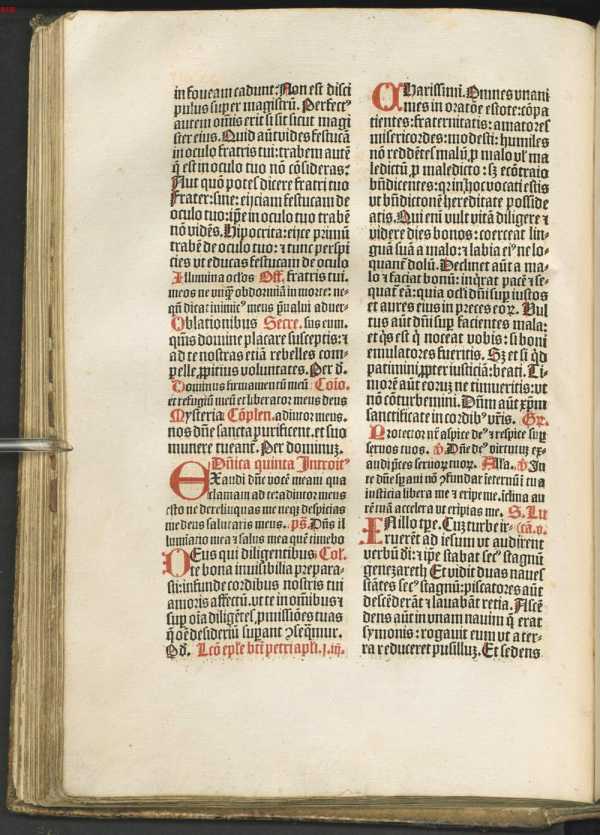 in foveam cadunt: Non est disci
pulus super magistrū. Perfect⁹
autem om̄is erit si sit sicut magi
ster eius. Quid aūt vides festucā
in oculo fratris tui: trabem autē
q̄ est in oculo tuo nō cōsideras:
Aut quōo potes dicere fratri tuo
Frater: sine: eijciam festucam de
oculo tuo: ip̄e in oculo tuo trabē
nō vidēs. Hipocrita: eijce primū
trabē de oculo tuo: ⁊ tunc perspi
cies vt educas festucam de oculo
Illumina oclōs Off. fratris tui.
meos ne vnq̄ꝫ obdormiā in morte: ne-
qn̄ dicat inimic⁹ meus p̄ualui aduer-
Oblationibus Secre. sus eum.
qūs domine placare susceptis: ⁊
ad te nostras etiā rebelles com-
pelle ꝓpitius voluntates. Per d.
Dominus firmamentū meū Coīo.
et refugiū meū et liberator meus deus
Mysteria Cōplen. adiutor meus.
nos dn̄e sancta purificent. et suo
munere tueant̄. Per dominuꝫ.
Dn̄ica quinta Introit⁹
EXaudi dn̄e vocē meam qua
clamaui ad te: adiutor meus
esto ne derelinquas me neqꝫ despicias
me deus salutaris meus. ps̄. Dn̄s il
luminatio mea ⁊ salus mea quē timebo
DEus qui diligentibus Col.
te bona inuisibilia prepara-
sti: infunde cordibus nostris tui
amoris affectū. vt te in om̄ibus ⁊
sup oīa diligētes ꝓmissiōes tuas
q̄ oē desideriū supant ↄseq̄mur.
Pd. Lcō ep̄le bt̄i petri apl̄i. j. iij.
CHarissimi. Omnes vnani
mes in oratōe estote: cōpa
tientes: fraternitatis: amatores
misericordes: modesti: humiles
nō reddētes malū ꝓ malo vl̄ ma
ledictū ꝓ maledicto: sꝫ ecōtraio
bn̄dicentes: qꝛ in hoc vocati estis
vt bn̄dictionē hereditate posside
atis. Qui eni vult vitā diligere ⁊
videre dies bonos: coerceat lin-
guā suā a malo: ⁊ labia ei⁹ ne lo-
quant̄ dolū. Declinet aūt a ma-
lo ⁊ faciat bonū: inq̄rat pacē ⁊ se-
quat̄ eā: quia oclī dn̄i sup iustos
et aures eius in p̄ces eoꝝ. Vul
tus aūt dn̄i sup facientes mala:
et q̄s est q̄ noceat vobis: si boni
emulatores fueritis. Sꝫ et si q̄d
patimini ꝓpter iusticiā: beati. Ti
morē aūt eoruꝫ ne timueritis: vt
nō cōturbemini. Dn̄m aūt xp̄m
sanctificate in cordib⁹ vr̄is. Gr.
Protector nr̄ aspice de⁹ ⁊ respice sup
seruos tuos. ℣ Dn̄e de⁹ virtutuꝫ ex-
audi p̄ces seruoꝝ tuoꝝ. Alla. ℣ In
te dn̄e spaui nō ↄfundar īeternū ī tua
iusticia libera me ⁊ eripe me. īclina au
rē tuā accelera vt eripias me. S. Lu
INillo tp̄e. Cuꝫ turbe ir- (cā. v.
ruerēt ad iesum vt audirent
verbū di: ⁊ ip̄e stabat sec⁹ stagnū
genezareth Et vidit duas naues
stātes sec⁹ stagnū: piscatores aūt
descēderāt ⁊ lauabāt retia. Ascē
dens aūt in vnam nauim q̄ erat
symonis: rogauit eum vt a ter-
ra reduceret pusilluꝫ. Et sedens